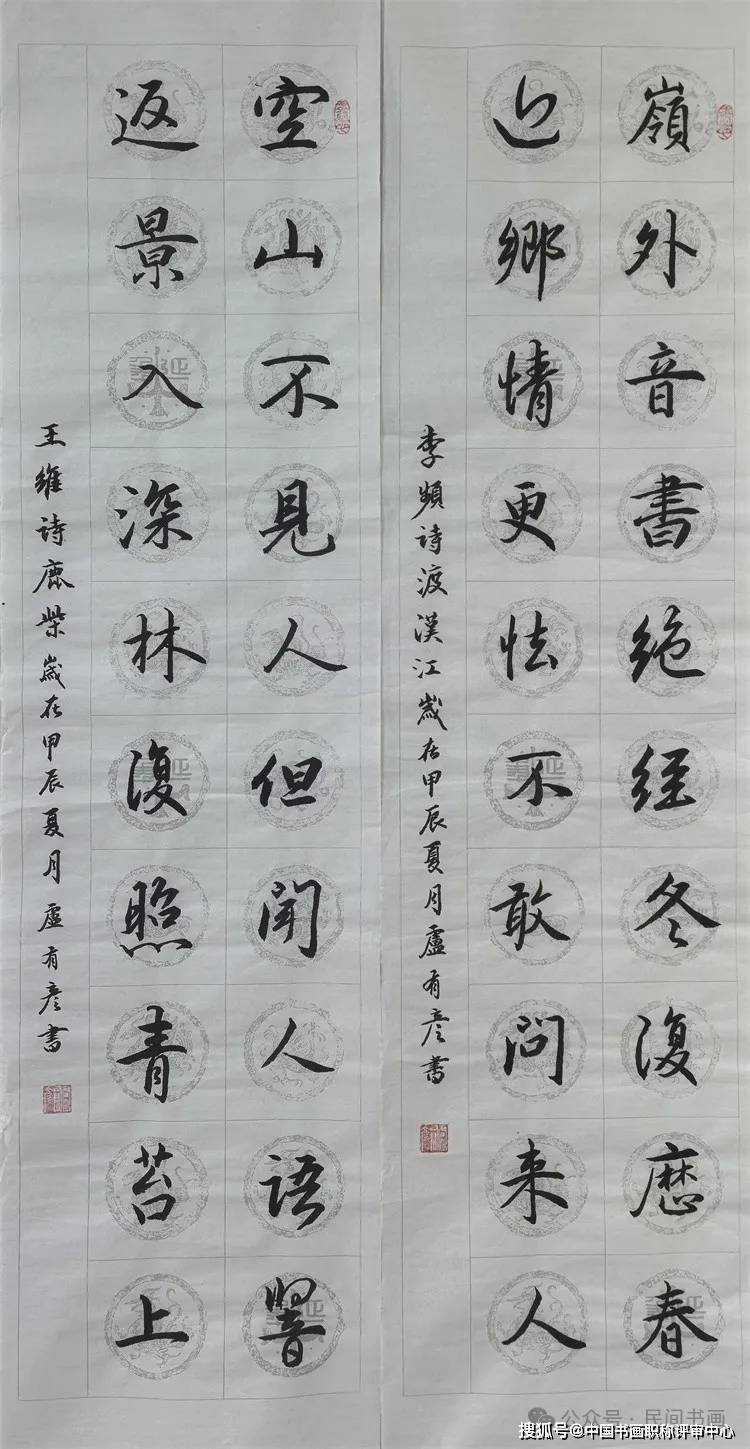 嶺外音書絶经冬復歷春
近鄉情更怯不敢問来人
李頻诗渡漢江歲在甲辰夏月盧有彦書
空山不見人但聞人语響
返景入深林復照青苔上
王維诗鹿柴歲在甲辰夏月盧有彦書
公众号·民间书画
搜狐号@中国书画职称评审中心